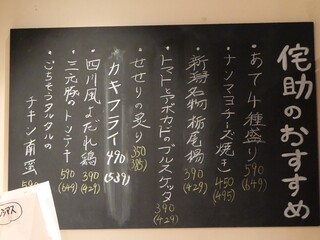 侘助のおすすめ
・あて4種盛り 590 (649)
・ナンマヨチーズ焼き 450 (495)
・新潟名物 栃尾揚 390 (429)
・トマトとアボカドのブルスケッタ 390 (429)
・せせりの炙り 350 (385)
・カキフライ 490 (539)
・四川風よだれ鶏 390 (429)
・三元豚のトンテキ 590 (649)
・ごちそうタルタルの
チキン南蛮